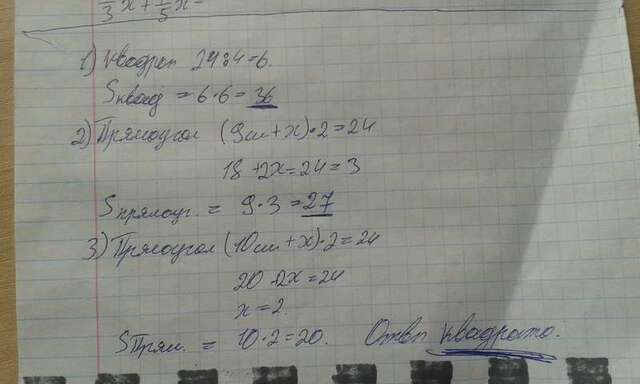 1/3 x + 1/5 x =
1) Квадрат 24:4=6.
Sквад = 6·6=36
2) Прямоугол (9см+x)·2=24
18+2x=24=3
Sпрямоуг. = 9·3=27
3) Прямоугол (10см+x)·2=24
20+2x=24
x=2.
SПрям. = 10·2=20. Ответ квадрата.